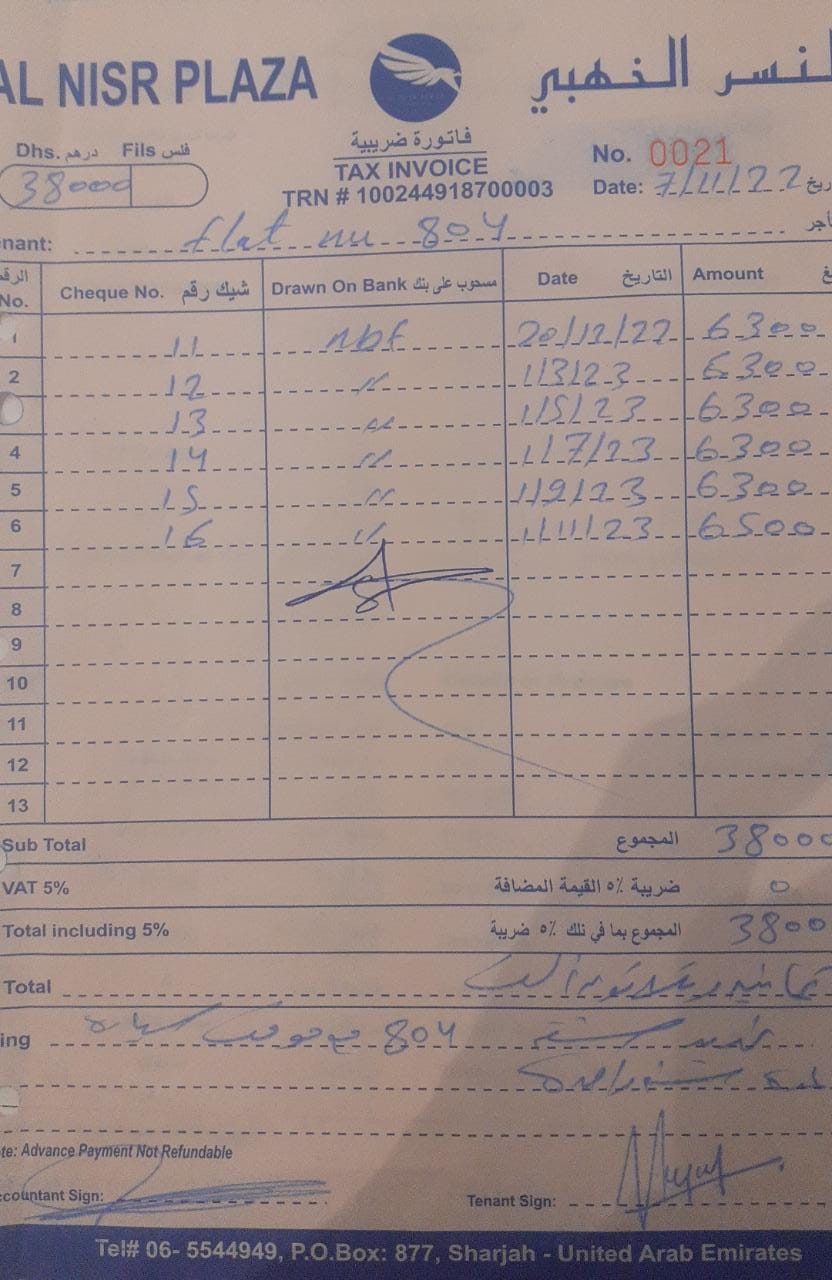 AL NISR PLAZA
النسر الذهبي
Dhs. درهم Fils فلس
38000
فاتورة ضريبية
TAX INVOICE
TRN # 100244918700003
No. 0021
Date: 7/11/22
enant: flat nu 804
No. Cheque No. شيك رقم Drawn On Bank مسحوب على بنك Date التاريخ Amount
1 11 nbf 20/12/22 6300
2 12 " 1/3/23 6300
13 " 1/5/23 6300
4 14 " 1/7/23 6300
5 15 " 1/9/23 6300
6 16 " 1/11/23 6500
7
8
9
10
11
12
13
Sub Total المجموع 38000
VAT 5% ضريبة ٥٪ القيمة المضافة 0
Total including 5% المجموع بما في ذلك ٥٪ ضريبة 3800
Total
ing 804
te: Advance Payment Not Refundable
ccountant Sign: Tenant Sign:
Tel# 06- 5544949, P.O.Box: 877, Sharjah - United Arab Emirates